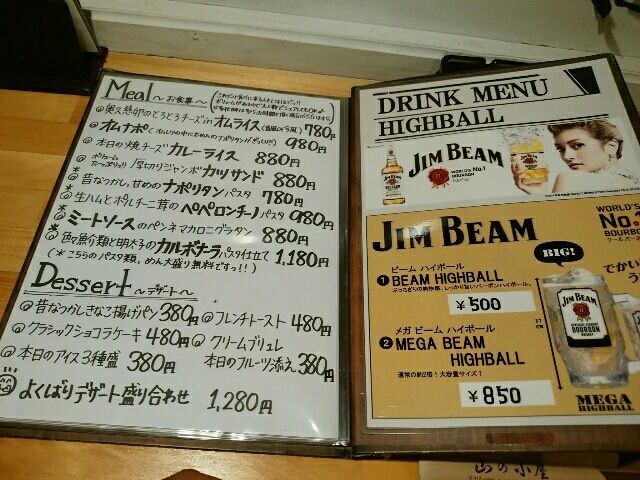 Meal ～お食事～
◎奥久慈卵のとろとろチーズinオムライス 780円
オムナポ 980円
◎本日の焼チーズカレーライス 880円
厚切りジャンボカツサンド 880円
昔なつかし、甘めのナポリタンパスタ 780円
生ハムとポルチーニ茸のペペロンチーノパスタ 980円
ミートソースのペンネマカロニグラタン 880円
魚介類と明太子のカルボナーラパスタ仕立て 1,180円
(*こちらのパスタ類、めん大盛り無料です!!)
Dessert ～デザート～
◎昔なつかしきなこ揚げパン 380円
◎フレンチトースト 480円
◎クラシックショコラケーキ 480円
◎クリームブリュレ
本日のフルーツ添え 380円
◎本日のアイス3種盛 380円
よくばりデザート盛り合わせ 1,280円
DRINK MENU
HIGHBALL
JIM BEAM
WORLD'S No.1
BOURBON
JIM BEAM
WORLD'S
No.
BOURBON
BIG!
でかい
❶ ビーム ハイボール
BEAM HIGHBALL
¥500
❷ メガ ビーム ハイボール
MEGA BEAM
HIGHBALL
通常の約2倍!大容量サイズ!
¥850
17
CM
JIM BEAM
MEGA
HIGHBALL
山の小屋